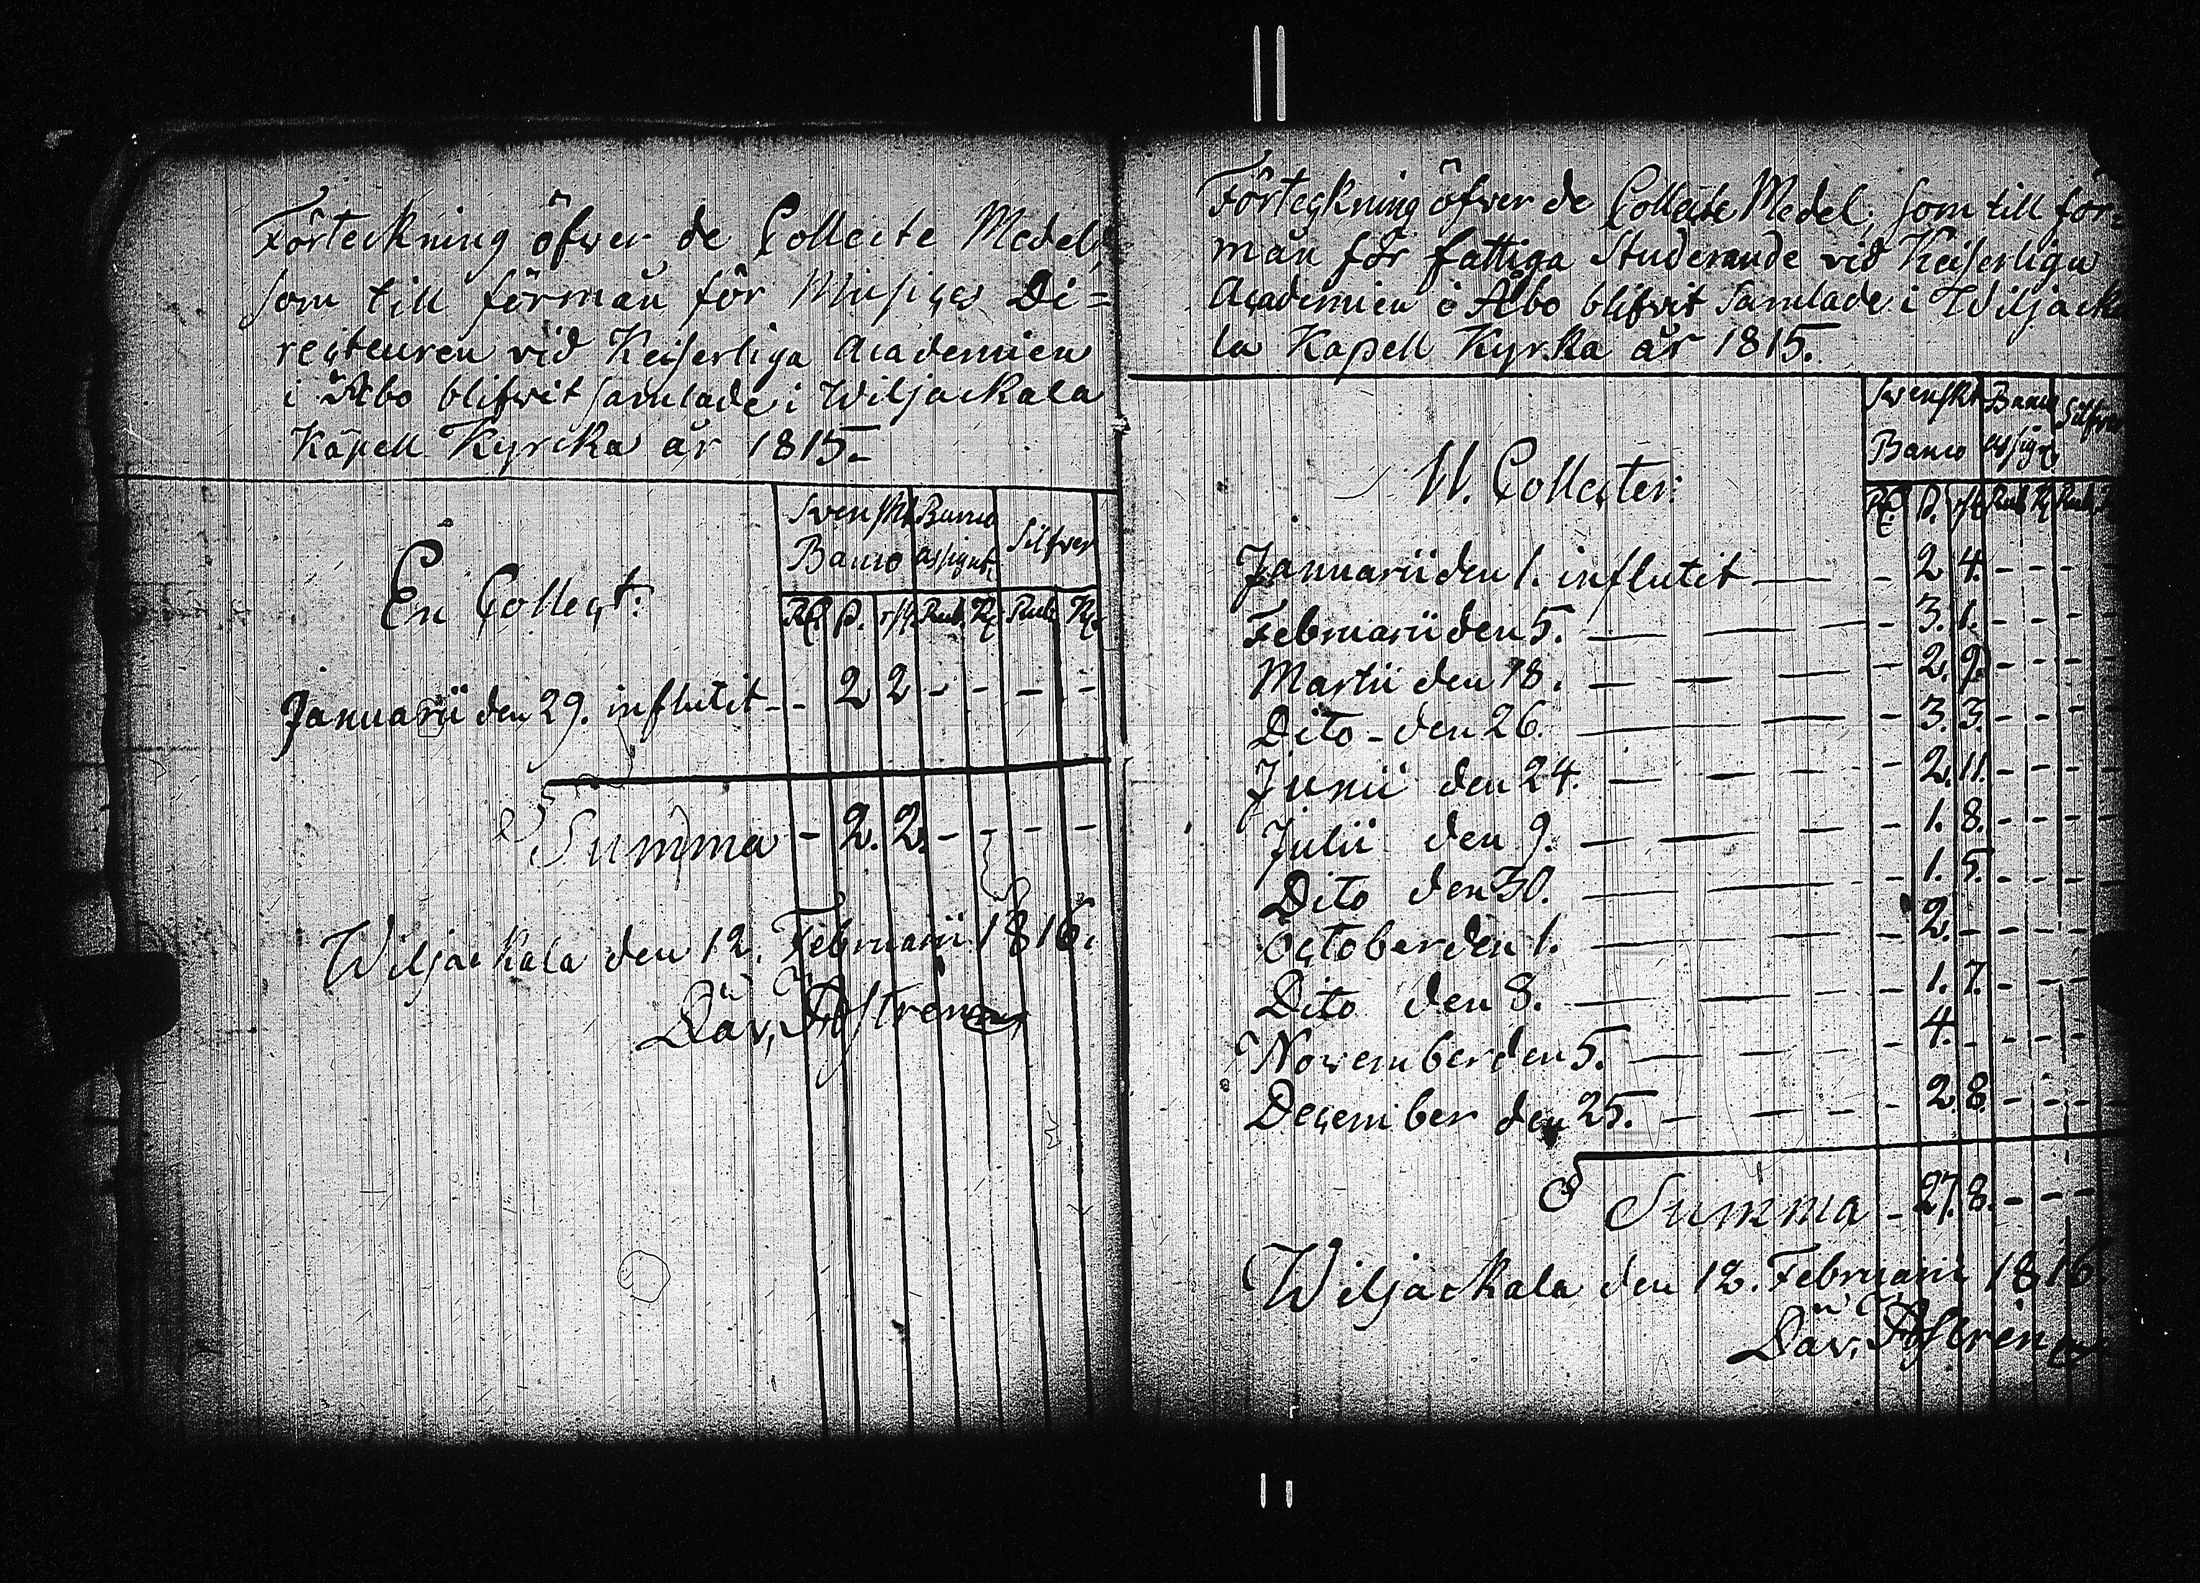 Förteckning öfver de Collecte Medel,
som till förmån för Musices Di=
recteuren vid Keiserliga Academien
i Åbo blifvit samlade i Wiljackala
Kapell Kyrcka år 1815.
Svenskt Banco Banco assignt. Silfver
En Collect:
Rd ß. r/st. Rub. Kc Rub. Kc
Januarii den 29. influtit - - 2 2 - - - -
Summa - 2. 2. - - - -
Wiljackala den 12. Februarii 1816.
Dav. Åström
Förteckning öfver de Collecte Medel, som till för=
mån för fattiga Studerande vid Keiserliga
Academien i Åbo blifvit samlade i Wiljack
la Kapell Kyrka år 1815.
Svenskt Banco Banco assigt. Silfver
11. Collecter:
Rd. ß. r/st Rub. Kc Rub.
Januarii den 1. influtit — - 2 4. - - -
Februarii den 5. — - 3. 1. - - -
Martii den 18. — - 2. 9. - - - -
Dito - den 26. — - 3. 3. - - -
Junii den 24. — - 2. 11. - - - -
Julii den 9. — - 1. 8. - - - -
Dito den 30. — - 1. 5. - - - -
October den 1. — - 2. - - - - -
Dito den 8. — - 1. 7. - - - -
November den 5. — - 4. - - - - -
December den 25. — - 2. 8. - - - -
Summa - 27. 8. - - -
Wiljackala den 12. Februarii 1816